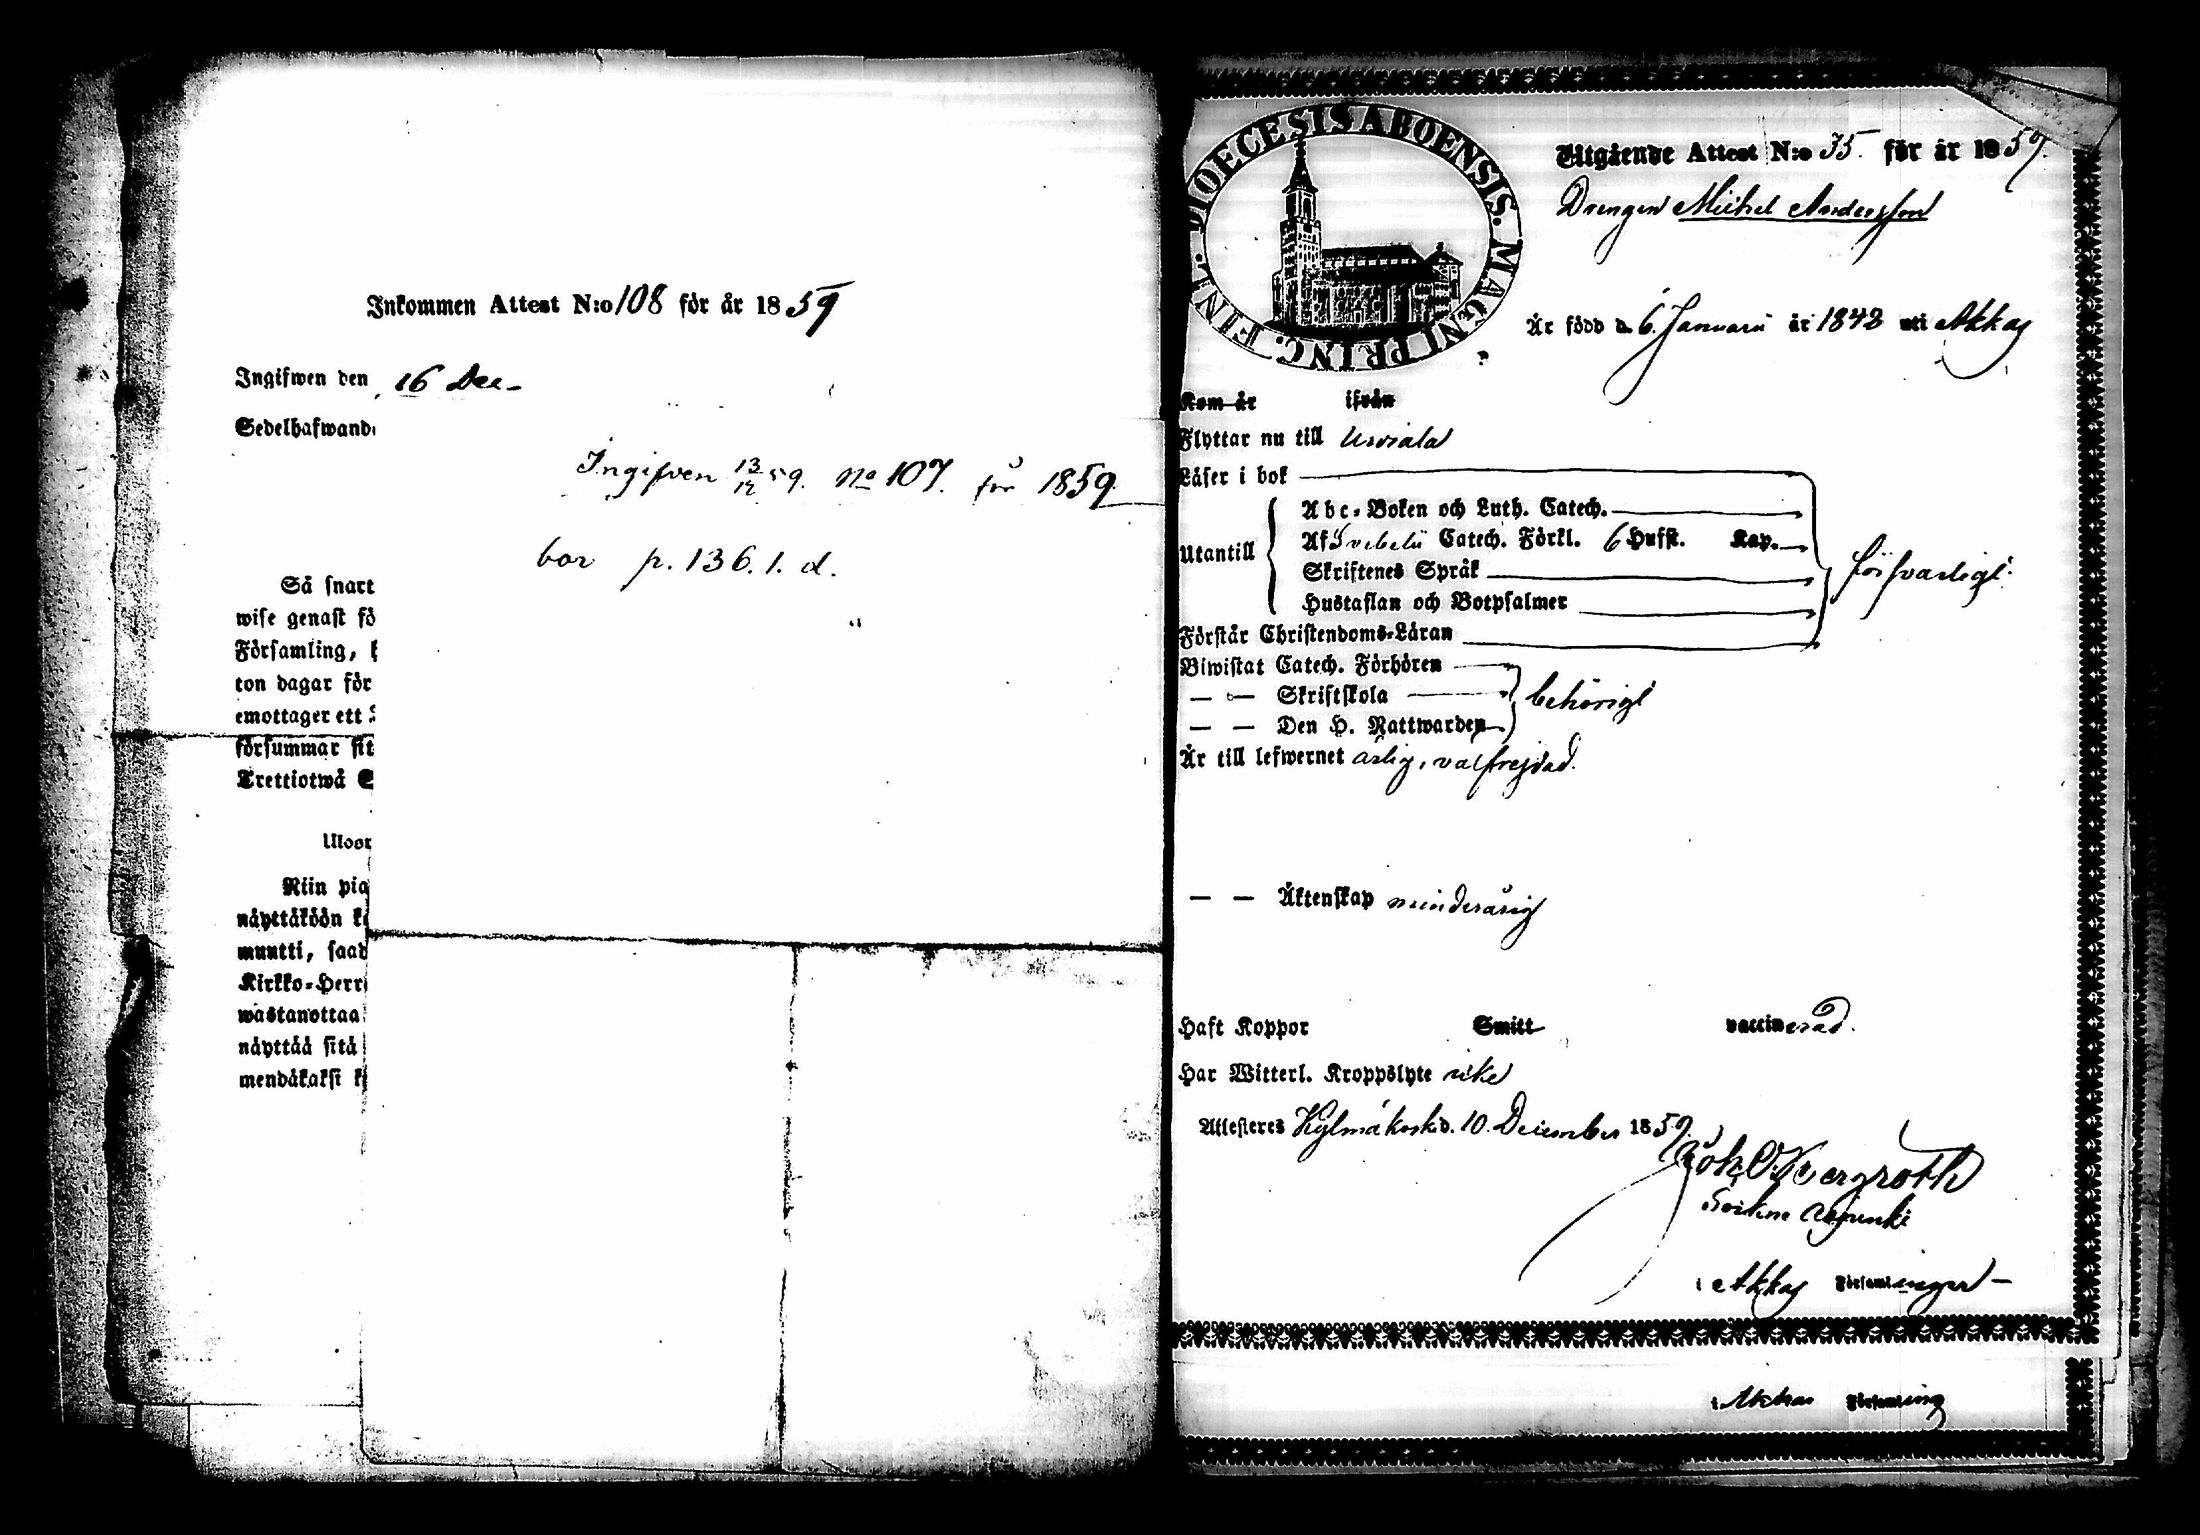 Inkommen Attest N:o 108 för år 1859
Ingifwen den 16 Dec-
Sedelhafwand
Ingifven 13/12 59. No 107. för 1859
bor p. 136. 1. d.
Så snart
wise genast fö
Församling,
ton dagar för
emottager ett
försummar sit
Trettiotwå S
Niin pia
näyttäköön k
muutti, saad
Kirkko-Herr
wastanottaa
näyttää sitä
mendäkaksi k
DIOECESIS ABOENSIS. MAGNI PRINC. FINL.
Utgående Attest N:o 35. för år 1859.
Drengen Michel Andersson
Är född d. 6. Januarii år 1842 uti Akkas
Kom år ifrån
Flyttar nu till Urdiala
Läser i bok
Utantill
Abc-Boken och Luth. Catech.
Af Svebelii Catech. Förkl. 6 Hufst. Kap.
Skriftenes Språk
Hustaflan och Botpsalmer
försvarligt.
Förstår Christendoms-Läran
Biwistat Catech. Förhören
— — Skriftskola
behörigt
— — Den H. Nattwarden
Är till lefwernet ärlig, välfrejdad.
— — Äktenskap minderårig
Haft Koppor Smitt vaccinerad.
Har Witterl. Kroppslyte icke
Attesteres Kylmäkoski d. 10. December 1859.
Joh. O. Wergroth
Sockne Adjunkt
i Akkas Församlingen
i Akkas Församling